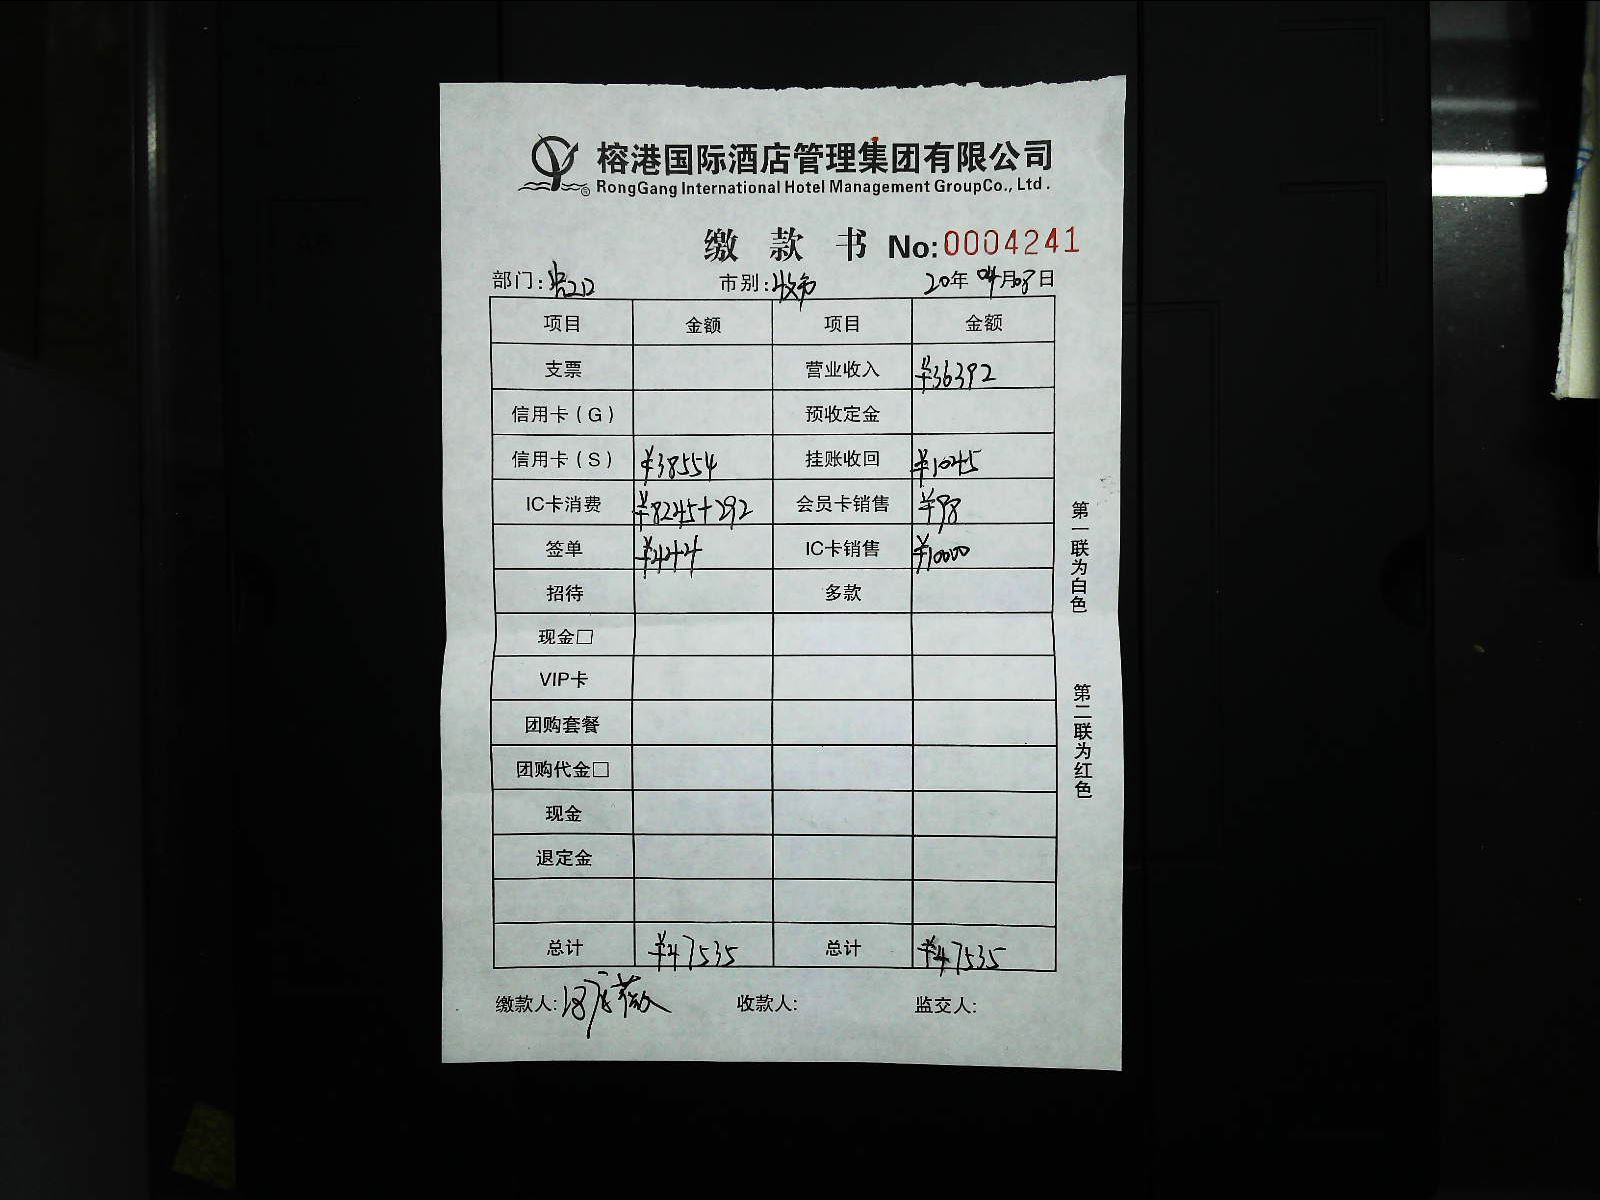 榕港国际酒店管理集团有限公司
RongGang International Hotel Management GroupCo., Ltd.
缴 款 书 No:0004241
部门: 市别: 20年04月08日
项目 金额 项目 金额
支票 营业收入 ¥36392
信用卡(G) 预收定金
信用卡(S) ¥38554 挂账收回 ¥1045
IC卡消费 ¥8245+292 会员卡销售 ¥98
签单 ¥444 IC卡销售 ¥10000
招待 多款
现金□
VIP卡
团购套餐
团购代金□
现金
退定金
总计 ¥47535 总计 ¥47535
缴款人: 收款人: 监交人:
第一联为白色
第二联为红色